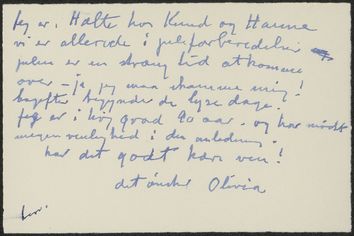 Jeg er i Halte hos Knud og Hanne
vi er allerede i juleforberedelser
julen er en streng tid at komme
over – ja jeg maa skamme mig!
bagefter begynder de lyse dage.
Jeg er i høj grad 90 aar. og har mødt
megen venlighed i den anledning.
har det godt kære ven!
det ønsker Olivia